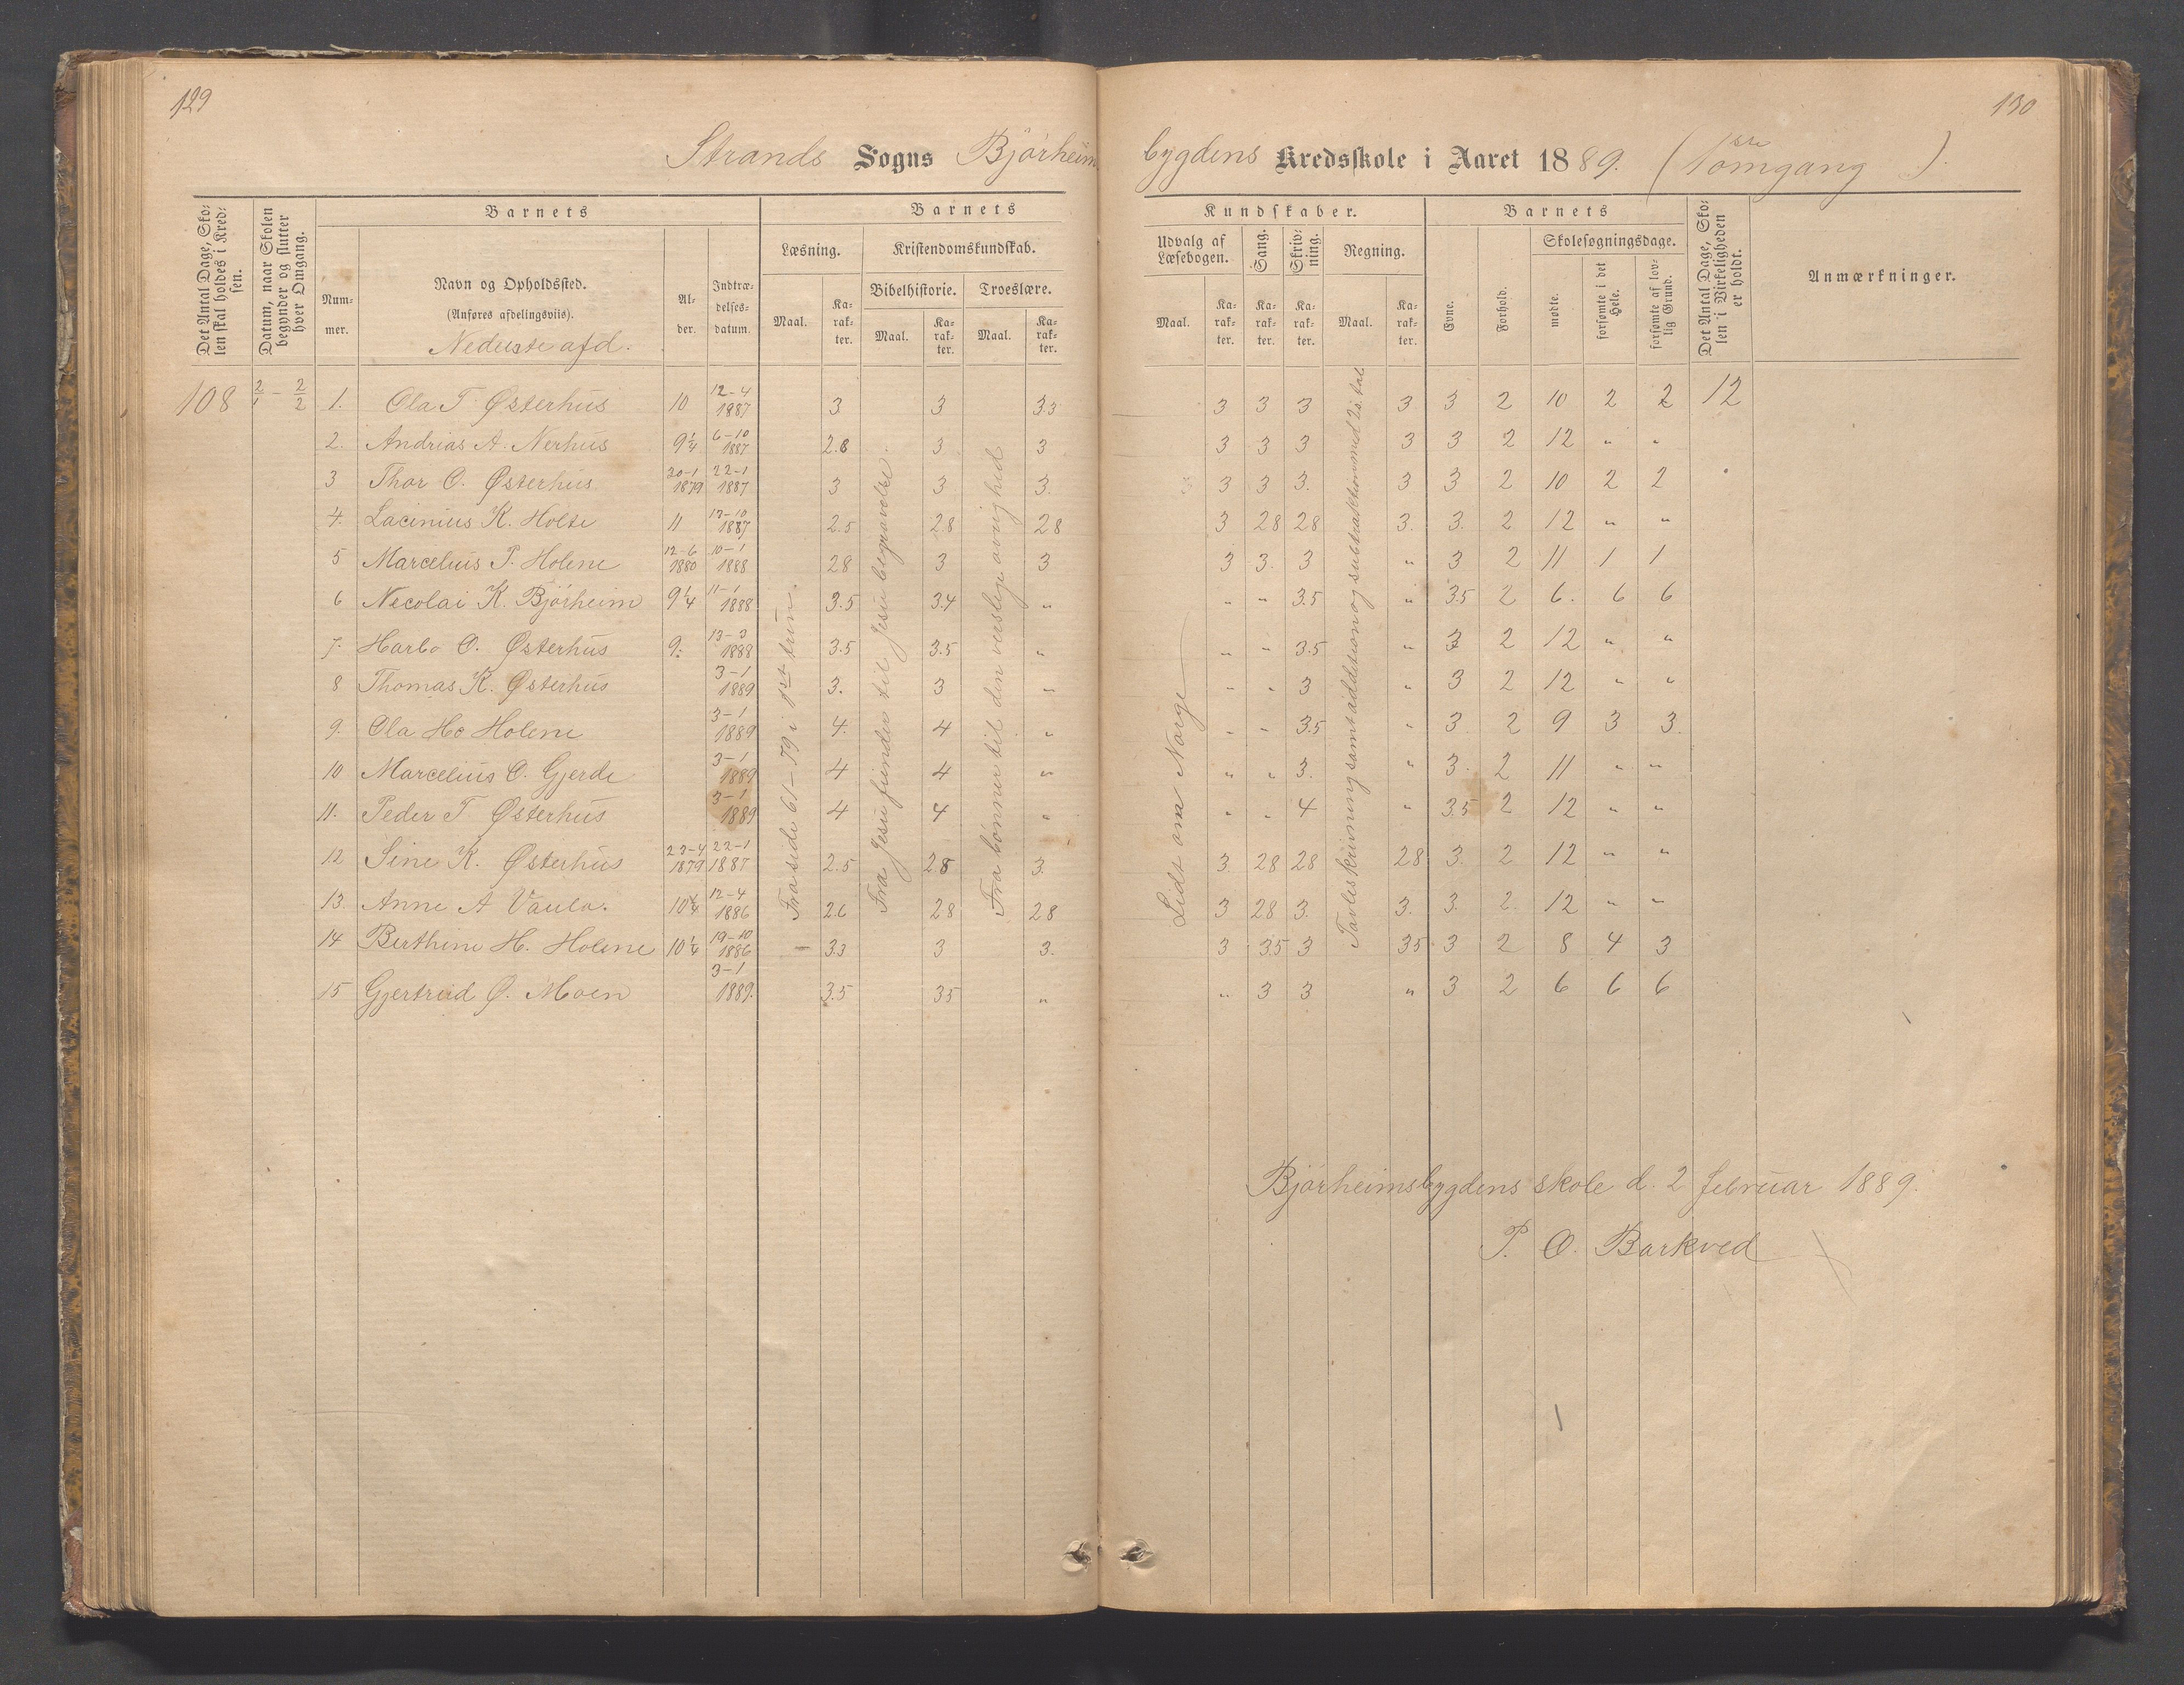 129
130
Strands Sogns Bjørheims
bygdens Kredsskole i Aaret 1889. (1ste omgang)
Det Antal Dage, Skolen skal holdes i Kredsen.
Datum, naar Skolen begynder og slutter hver Omgang.
Barnets
Nummer.
Navn og Opholdssted.
(Anføres afdelingsviis).
Nederste afd.
Alder.
Indtrædelsesdatum.
Barnets
Læsning.
Maal.
Karakter.
Kristendomskundskab.
Bibelhistorie.
Maal.
Karakter.
Troeslære.
Maal.
Karakter.
Kundskaber.
Udvalg af Læsebogen.
Maal.
Karakter.
Sang.
Karakter.
Skrivning.
Karakter.
Regning.
Maal.
Karakter.
Barnets
Evne.
Forhold.
Skolesøgningsdage.
mødte.
forsømte i det Hele.
forsømte af lovlig Grund.
Det Antal Dage, Skolen i Virkeligheden er holdt.
Anmærkninger.
108 2/1 - 2/2 1. Ola T Østerhus 10 12-4 1887 3 3 3.3 3 3 3 3 3 2 10 2 2 12
2. Andrias A. Nerhus 9 1/4 6-10 1887 2.8 3 3 3 3 3 3 3 2 12 " "
3 Thor O. Østerhus 20-1 1879 22-1 1887 3 3 3. 3 3 3. 3 3 2 10 2 2
4. Lacinius K. Holte 11 13-10 1887 2.5 28 28 3 28 28 3. 3. 2 12 " "
5 Marcelius P. Holene 12-6 1880 10-1 1888 28 3 3 3 3. 3 " 3 2 11 1 1
6 Necolai K. Bjørheim 9 1/4 11-1 1888 3.5 3.4 " " " 3.5 " 3.5 2 6. 6 6
7. Harbo O. Østerhus 9. 13-3 1888 3.5 3.5 " " " 3.5 " 3 2 12 " "
8 Thomas K. Østerhus 3-1 1889 3. 3 " " " 3 " 3 2 12 " "
9. Ola H Holene 3-1 1889 4. 4 " " " 3.5 " 3. 2 9 3 3.
10 Marcelius O. Gjerde 3-1 1889 4 4 " " " 3. " 3. 2 11 " "
11. Peder T Østerhus 3-1 1889 4 4 " " " 4 " 3.5 2 12 " "
12 Sine K. Østerhus 23-4 1879 22-1 1887 2.5 28 3. 3. 28 28 28 3. 2 12 " "
13. Anne A Vaula. 10 3/4 12-4 1886 26 28 28 3 28 3. 3. 3. 2. 12 " "
14 Berthine H. Holene 10 1/4 19-10 1886 3.3 3 3. 3 35 3 35 3 2 8 4 3
15 Gjertrud Ø. Moen 3-1 1889. 3.5 35 " " 3 3 " 3 2 6 6 6
Fra side 61-79 i 1ste trin.
Fra Jesu fiender til Jesu begravelse.
Fra bønner til den verslige øvrighed
Lidt om Norge
Tavleskrivning samt addition og subtraktion med 2 s. tal
Bjørheimsbygdens skole d. 2 februar 1889.
P. O. Barkved